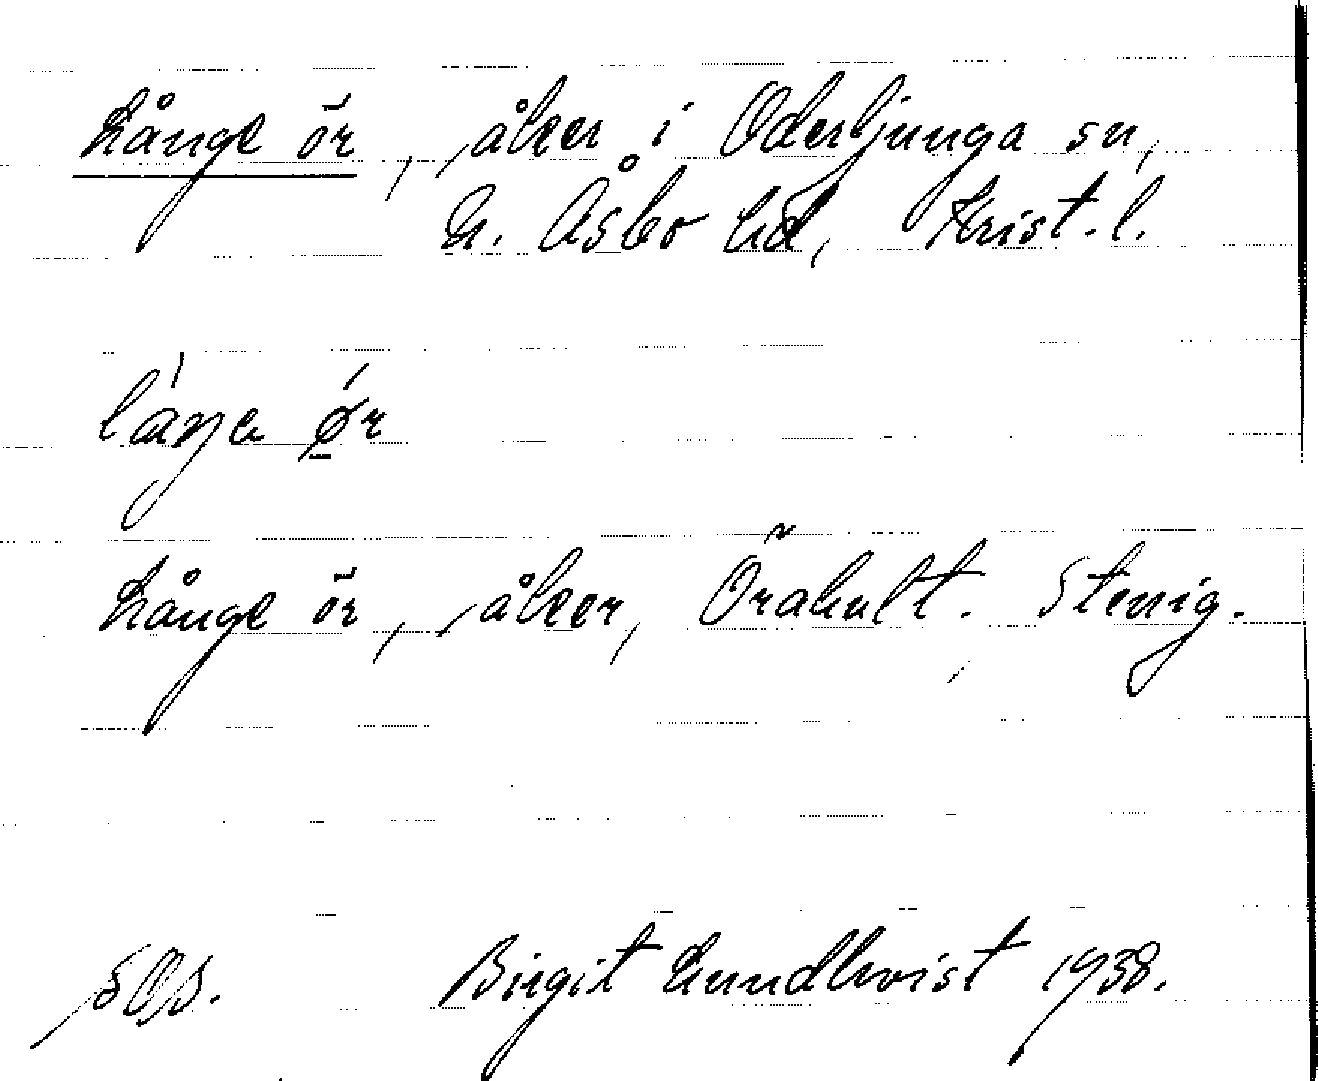 Långe ör, åker i Oderljunga sn,
N. Åsbo hd, Krist. l.
Långe ör, åker, Örahult. Stenig.
Birgit Lundkvist 1938.